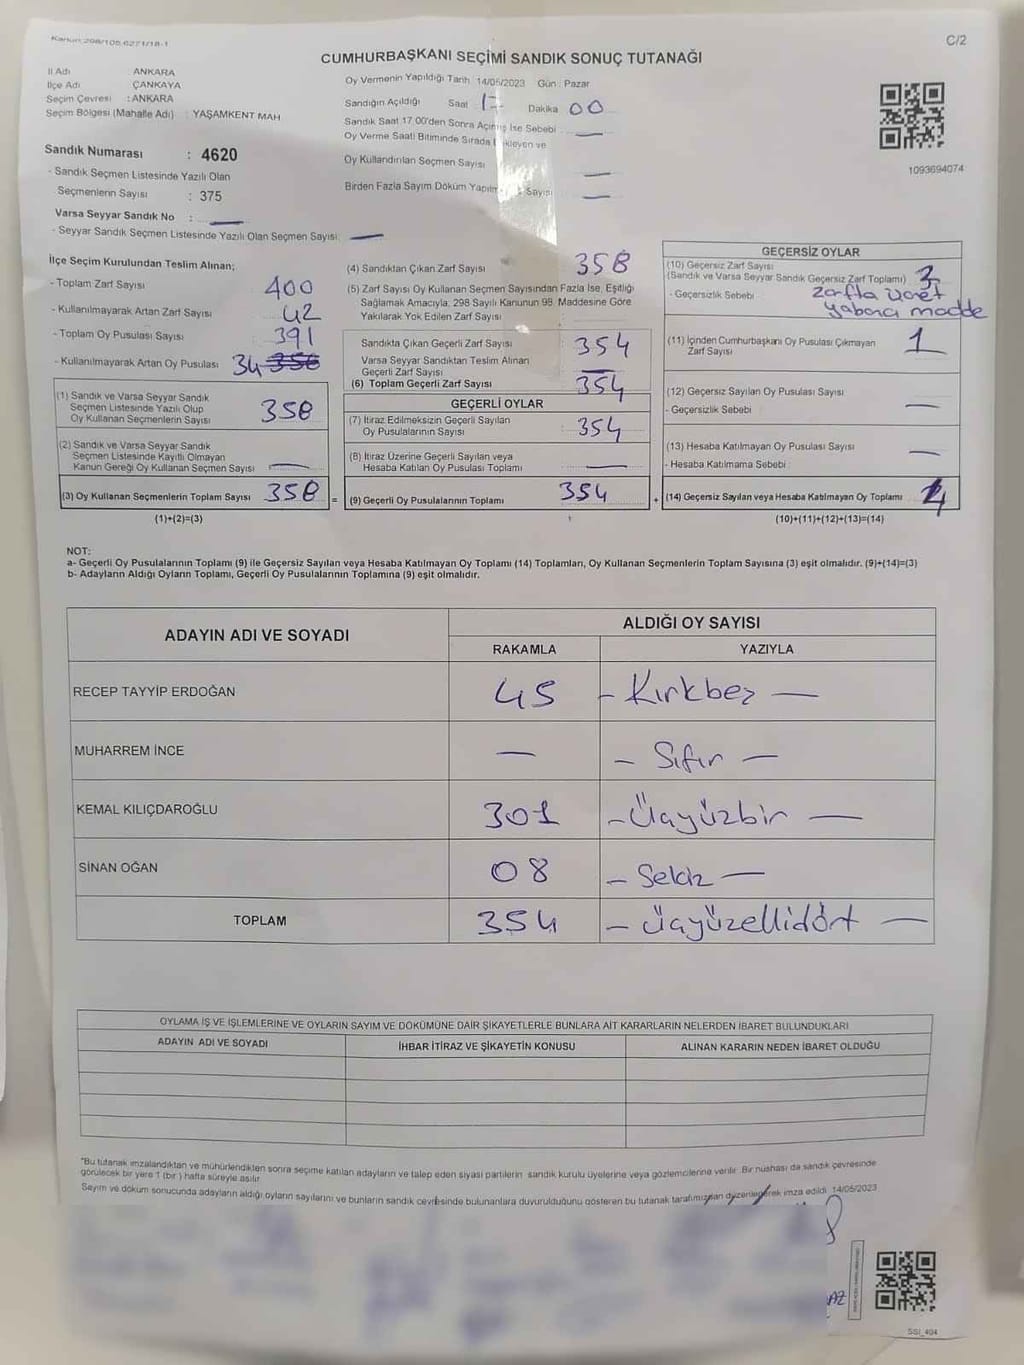 Kanun 298/105,6271/18-1
C/2
CUMHURBAŞKANI SEÇİMİ SANDIK SONUÇ TUTANAĞI
İl Adı : ANKARA
İlçe Adı : ÇANKAYA
Seçim Çevresi : ANKARA
Seçim Bölgesi (Mahalle Adı) : YAŞAMKENT MAH
Sandık Numarası : 4620
- Sandık Seçmen Listesinde Yazılı Olan
Seçmenlerin Sayısı : 375
Varsa Seyyar Sandık No : —
- Seyyar Sandık Seçmen Listesinde Yazılı Olan Seçmen Sayısı: —
Oy Vermenin Yapıldığı Tarih : 14/05/2023 Gün : Pazar
Sandığın Açıldığı Saat 17 Dakika 00
Sandık Saat 17.00'den Sonra Açılmış İse Sebebi —
Oy Verme Saati Bitiminde Sırada Bekleyen ve
Oy Kullandırılan Seçmen Sayısı —
Birden Fazla Sayım Döküm Sayısı —
1093694074
İlçe Seçim Kurulundan Teslim Alınan;
- Toplam Zarf Sayısı 400
- Kullanılmayarak Artan Zarf Sayısı 42
- Toplam Oy Pusulası Sayısı 391
- Kullanılmayarak Artan Oy Pusulası 34 358
(1) Sandık ve Varsa Seyyar Sandık
Seçmen Listesinde Yazılı Olup
Oy Kullanan Seçmenlerin Sayısı 358
(2) Sandık ve Varsa Seyyar Sandık
Seçmen Listesinde Kayıtlı Olmayan
Kanun Gereği Oy Kullanan Seçmen Sayısı —
(3) Oy Kullanan Seçmenlerin Toplam Sayısı 358 =
(1)+(2)=(3)
(4) Sandıktan Çıkan Zarf Sayısı 358
(5) Zarf Sayısı Oy Kullanan Seçmen Sayısından Fazla İse, Eşitliği
Sağlamak Amacıyla, 298 Sayılı Kanunun 98. Maddesine Göre
Yakılarak Yok Edilen Zarf Sayısı
Sandıkta Çıkan Geçerli Zarf Sayısı 354
Varsa Seyyar Sandıktan Teslim Alınan
Geçerli Zarf Sayısı —
(6) Toplam Geçerli Zarf Sayısı 354
GEÇERLİ OYLAR
(7) İtiraz Edilmeksizin Geçerli Sayılan
Oy Pusulalarının Sayısı : 354
(8) İtiraz Üzerine Geçerli Sayılan veya
Hesaba Katılan Oy Pusulası Toplamı : —
(9) Geçerli Oy Pusulalarının Toplamı 354 +
GEÇERSİZ OYLAR
(10) Geçersiz Zarf Sayısı
(Sandık ve Varsa Seyyar Sandık Geçersiz Zarf Toplamı) 3
- Geçersizlik Sebebi zarfta ücret
yabancı madde
(11) İçinden Cumhurbaşkanı Oy Pusulası Çıkmayan
Zarf Sayısı 1
(12) Geçersiz Sayılan Oy Pusulası Sayısı
- Geçersizlik Sebebi —
(13) Hesaba Katılmayan Oy Pusulası Sayısı
- Hesaba Katılmama Sebebi —
(14) Geçersiz Sayılan veya Hesaba Katılmayan Oy Toplamı 4
(10)+(11)+(12)+(13)=(14)
NOT:
a- Geçerli Oy Pusulalarının Toplamı (9) ile Geçersiz Sayılan veya Hesaba Katılmayan Oy Toplamı (14) Toplamları, Oy Kullanan Seçmenlerin Toplam Sayısına (3) eşit olmalıdır. (9)+(14)=(3)
b- Adayların Aldığı Oyların Toplamı, Geçerli Oy Pusulalarının Toplamına (9) eşit olmalıdır.
ADAYIN ADI VE SOYADI
ALDIĞI OY SAYISI
RAKAMLA YAZIYLA
RECEP TAYYİP ERDOĞAN 45 - Kırkbeş —
MUHARREM İNCE — - Sıfır —
KEMAL KILIÇDAROĞLU 301 - Üçyüzbir —
SİNAN OĞAN 08 - Sekiz —
TOPLAM 354 - üçyüzellidört —
OYLAMA İŞ VE İŞLEMLERİNE VE OYLARIN SAYIM VE DÖKÜMÜNE DAİR ŞİKAYETLERLE BUNLARA AİT KARARLARIN NELERDEN İBARET BULUNDUKLARI
ADAYIN ADI VE SOYADI İHBAR İTİRAZ VE ŞİKAYETİN KONUSU ALINAN KARARIN NEDEN İBARET OLDUĞU
*Bu tutanak imzalandıktan ve mühürlendikten sonra seçime katılan adayların ve talep eden siyasi partilerin sandık kurulu üyelerine veya gözlemcilerine verilir. Bir nüshası da sandık çevresinde
görülecek bir yere 1 (bir) hafta süreyle asılır.
Sayım ve döküm sonucunda adayların aldığı oyların sayılarını ve bunların sandık çevresinde bulunanlara duyurulduğunu gösteren bu tutanak tarafımızdan düzenlenerek imza edildi. 14/05/2023
AZ
SSI_404